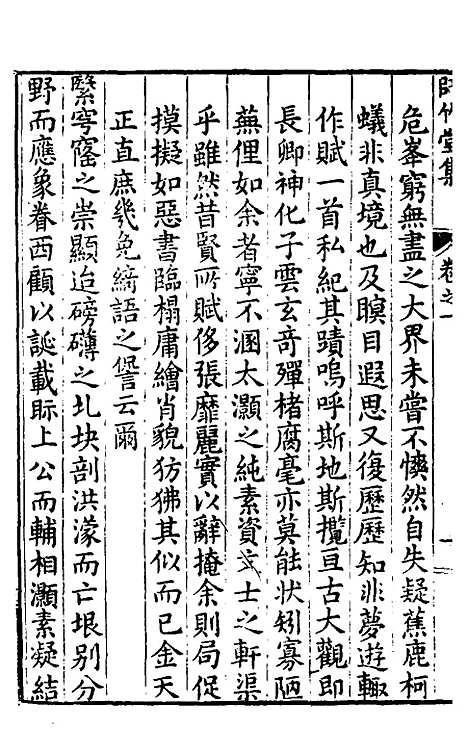 時竹堂集
卷之一
一
危峯窮無盡之大界未嘗不懊然自失疑蕉鹿柯
蟻非真境也及瞑目遐思又復歷歷知非夢遊輙
作賦一首私紀其蹟嗚呼斯地斯攬亘古大觀即
長卿神化子雲玄竒殫楮腐毫亦莫能狀矧寡陋
蕪俚如余者寧不溷太灝之純素資文士之軒渠
乎雖然昔賢所賦侈張靡麗實以辭掩余則局促
摸擬如惡書臨榻庸繪肖貌彷彿其似而已金天
正直庶幾免綺語之諐云爾
繄穹窿之崇顯迨磅礴之圠坱剖洪濛而亡垠别分
野而應象眷西顧以誕載眎上公而輔相灝素凝結